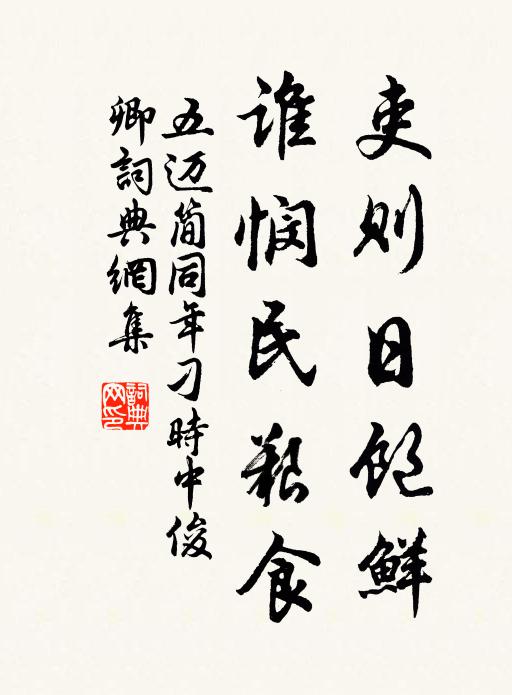 吏则日饱鮮
谁悯民艱食
五迈简同年刁時中俊
卿詞典網集
詞典网印